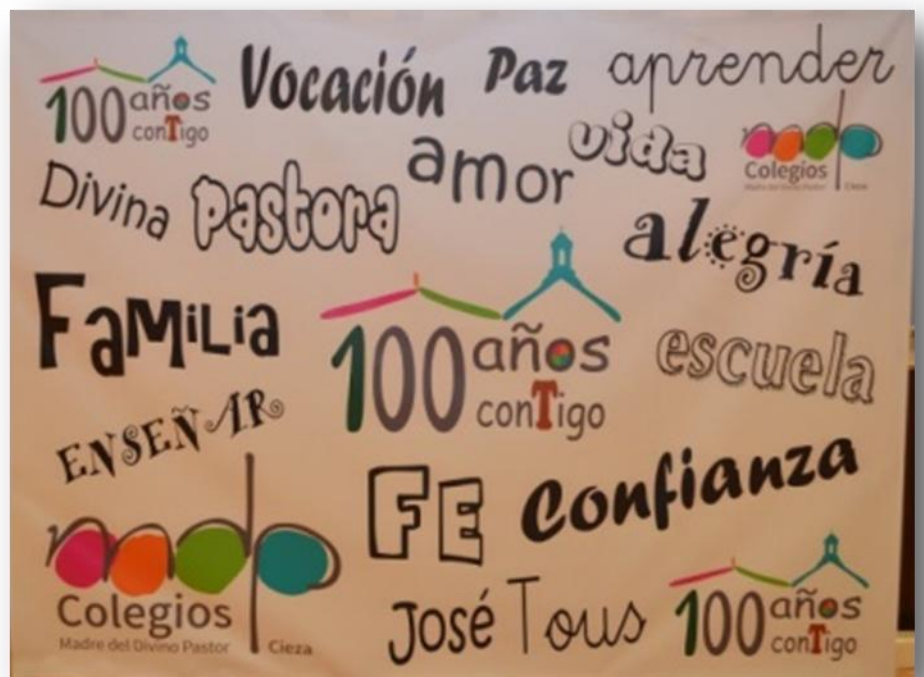 100 años
conTigo
Vocación
Paz
aprender
amor
vida
mdp
Colegios
Madre del Divino Pastor Cieza
Divina Pastora
alegría
FaMiLia
100 años
conTigo
escuela
ENSEÑAR
FE
Confianza
mdp
Colegios
Madre del Divino Pastor Cieza
José Tous
100 años
conTigo